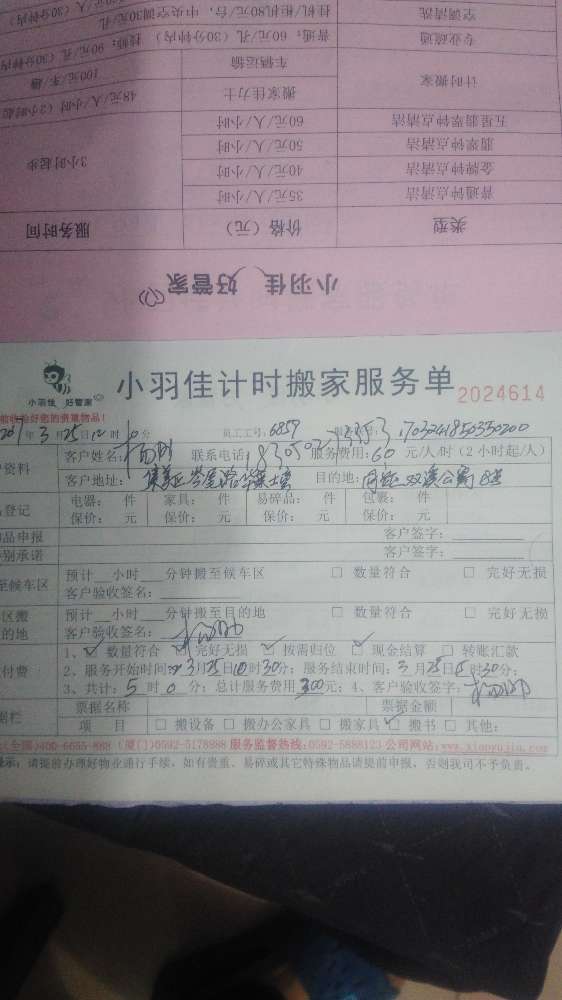 空调清洗 挂机/柜机80元/台，中央空调30元/孔
专业疏通 普通：60元/孔（30分钟内） 技师：90元/孔（30分钟内）
计时搬家 车辆运输 100元/车/趟
搬家佳力士 48元/人/小时（2小时起
五星翡翠钟点清洁 60元/人/小时
翡翠钟点清洁 50元/人/小时
金牌钟点清洁 40元/人/小时 3小时起步
普通钟点清洁 35元/人/小时
类型 价格（元） 服务时间
小羽佳 好管家
小羽佳 好管家
小羽佳计时搬家服务单 2024614
验收验好您的贵重物品！
年3月25日 时 分 员工工号：6859
资料 客户姓名： 联系电话： 服务费用：60元/人/时（2小时起/人）
客户地址： 目的地： 双溪公寓
登记 电器： 件 家具： 件 易碎品： 件 包裹： 件
保价： 元 保价： 元 保价： 元 保价： 元
品申报 客户签字：
别承诺 客户签字：
至候车区 预计 小时 分钟搬至候车区 □ 数量符合 □ 完好无损
客户验收签名：
区搬 预计 小时 分钟搬至目的地 □ 数量符合 □ 完好无损
的地 客户验收签名：
1、 数量符合 □ 完好无损 □ 按需归位 □ 现金结算 □ 转账汇款
付费 2、服务开始时间：3月25日10时30分；服务结束时间：3月25日15时30分；
3、共计：5时0分；总计服务费用300元；4、客户验收签字：
据栏 票据名称 票据金额
项 目 □ 搬设备 □ 搬办公家具 □ 搬家具 □ 搬书 □ 其他：
(全国)400-6655-888 (厦门)0592-5178988 服务监督热线：0592-5888123 公司网站：www.xiaoyujia.com
提示：请提前办理好物业通行手续，如有贵重、易碎或其它特殊物品请提前申报，否则我司不予负责。